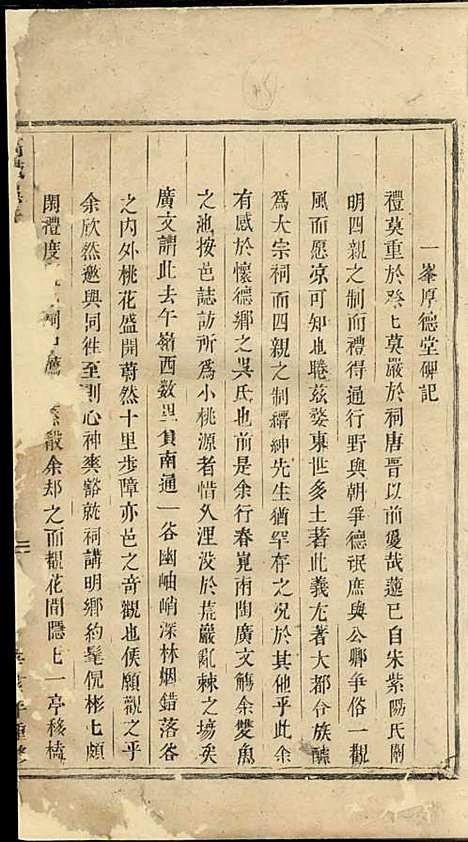 一峯厚德堂碑記
禮莫重於祭七莫嚴於祠唐晋以前夐哉邈已自朱紫陽氏闡
明四親之制而禮得通行野與朝爭德氓庶與公卿爭俗一觀
風而愿凉可知也睠茲婺東世多土著此義尤著大都合族醵
爲大宗祠而四親之制縉紳先生猶罕存之况於其他乎此余
有感於懷德鄉之吳氏也前是余行春覓雨閩廣文觴余雙魚
之池按邑誌訪所爲小桃源者惜久湮没於荒巖亂棘之塲矣
廣文謂此去午嶺西數里負南通一谷幽岫峭深林烟錯落谷
之内外桃花盛開蔚然十里步障亦邑之奇觀也侯願觀之乎
余欣然邀與同徃至則心神爽豁就祠講明鄉約髦倪彬七頗
閑禮度 祠 散余却之而觀花間隱七一亭移椅